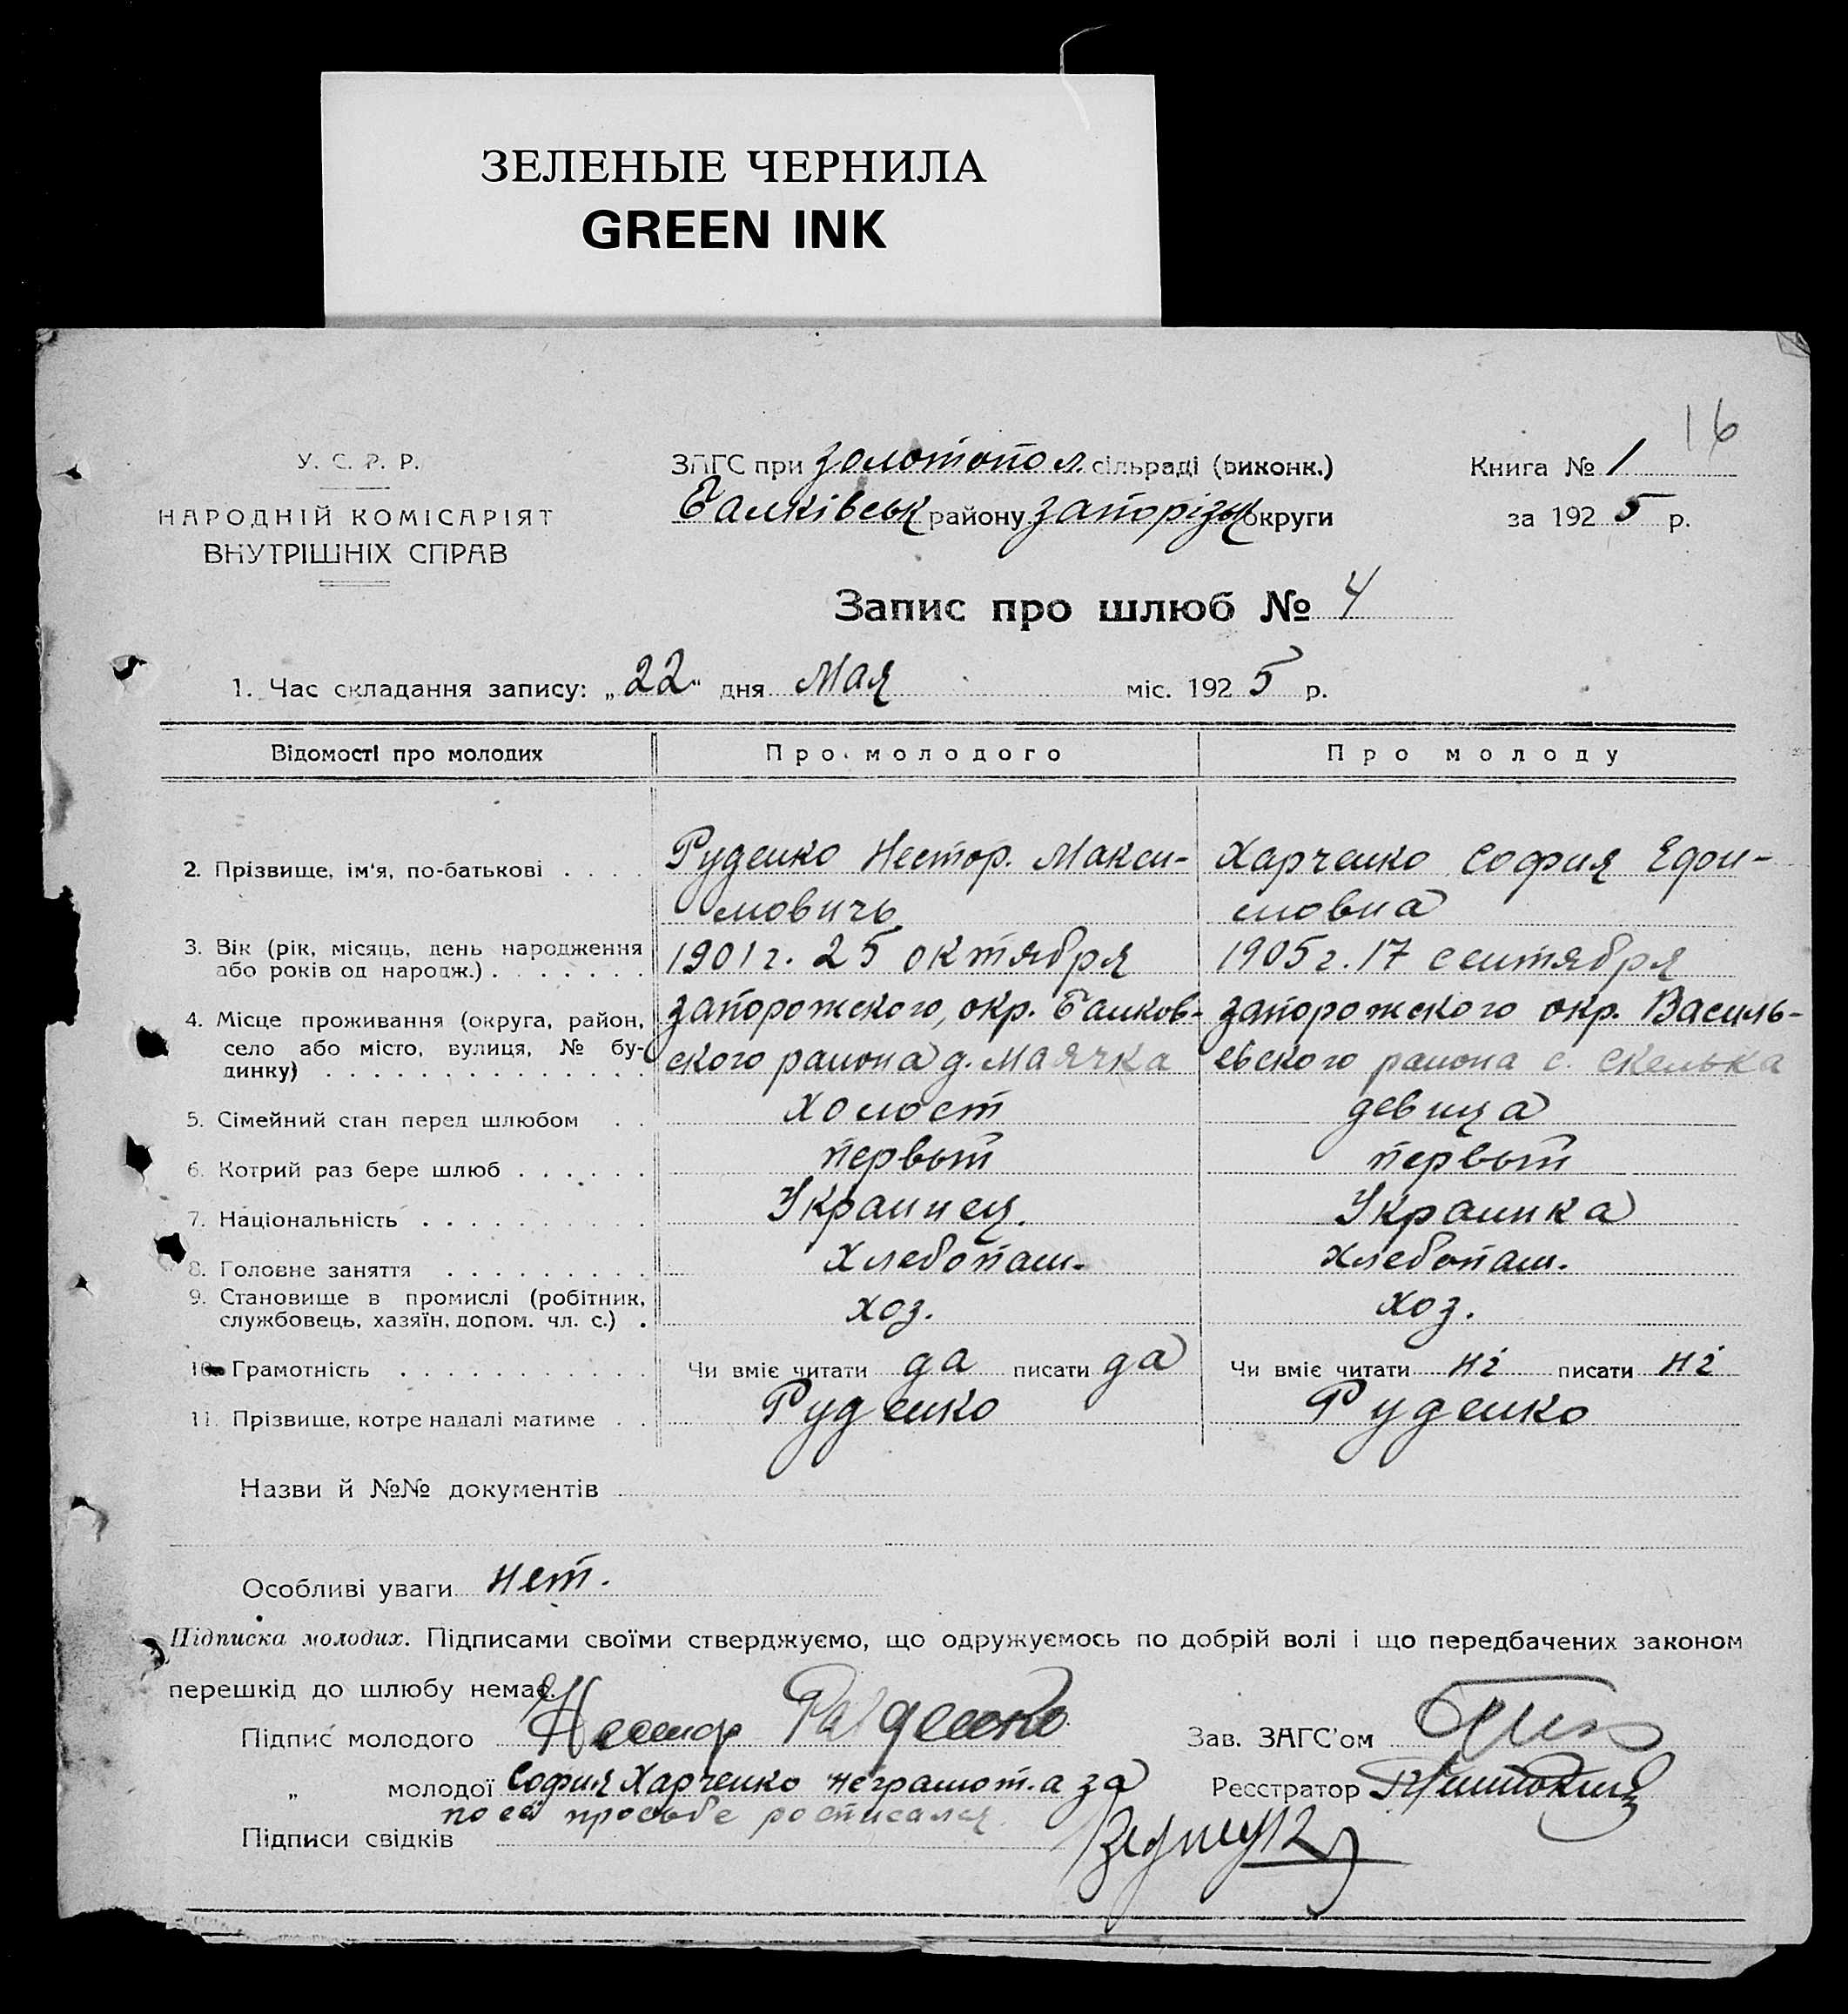 ЗЕЛЕНЫЕ ЧЕРНИЛА
GREEN INK
16
У. С. Р. Р.
НАРОДНІЙ КОМІСАРІЯТ
ВНУТРІШНІХ СПРАВ
ЗАГС при золотопол. сільраді (виконк.)
Балківськ району запорізьк округи
Книга № 1
за 1925 р.
Запис про шлюб № 4
1. Час складання запису: „22" дня Мая міс. 1925 р.
Відомості про молодих Про молодого Про молоду
2. Прізвище, ім'я, по-батькові Руденко Нестор. Макси- Харченко София Ефи-
мовичь мовна
3. Вік (рік, місяць, день народження
або років од народж.) 1901 г. 25 октября 1905 г. 17 сентября
4. Місце проживання (округа, район, запорожского, окр. Балков- запорожского окр. Василь-
село або місто, вулиця, № бу-
динку) ского района д. Маячка евского района с. Скелька
5. Сімейний стан перед шлюбом холост девица
6. Котрий раз бере шлюб первый первый
7. Національність Украинец. Украинка
8. Головне заняття Хлебопаш. хлебопаш.
9. Становище в промислі (робітник,
службовець, хазяїн, допом. чл. с.) хоз. хоз.
10. Грамотність Чи вміє читати да писати да Чи вміє читати ні писати ні
11. Прізвище, котре надалі матиме Руденко Руденко
Назви й №№ документів
Особливі уваги нет.
Підписка молодих. Підписами своїми стверджуємо, що одружуємось по добрій волі і що передбачених законом
перешкід до шлюбу немає.
Підпис молодого Нестор Руденко Зав. ЗАГС'ом
„ молодої София Харченко неграмот. а за Реєстратор
по её просьбе росписался
Підписи свідків